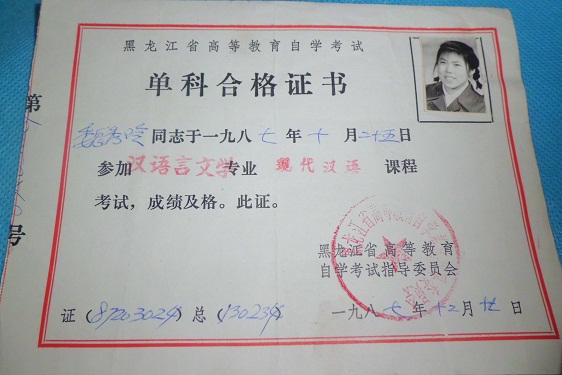 黑龙江省高等教育自学考试
单科合格证书
同志于一九八七年十月二十五日
参加汉语言文学专业 现代汉语 课程
考试,成绩及格。此证。
黑龙江省高等教育
自学考试指导委员会
证( ) 总( ) 一九八七年十二月廿日
第
号